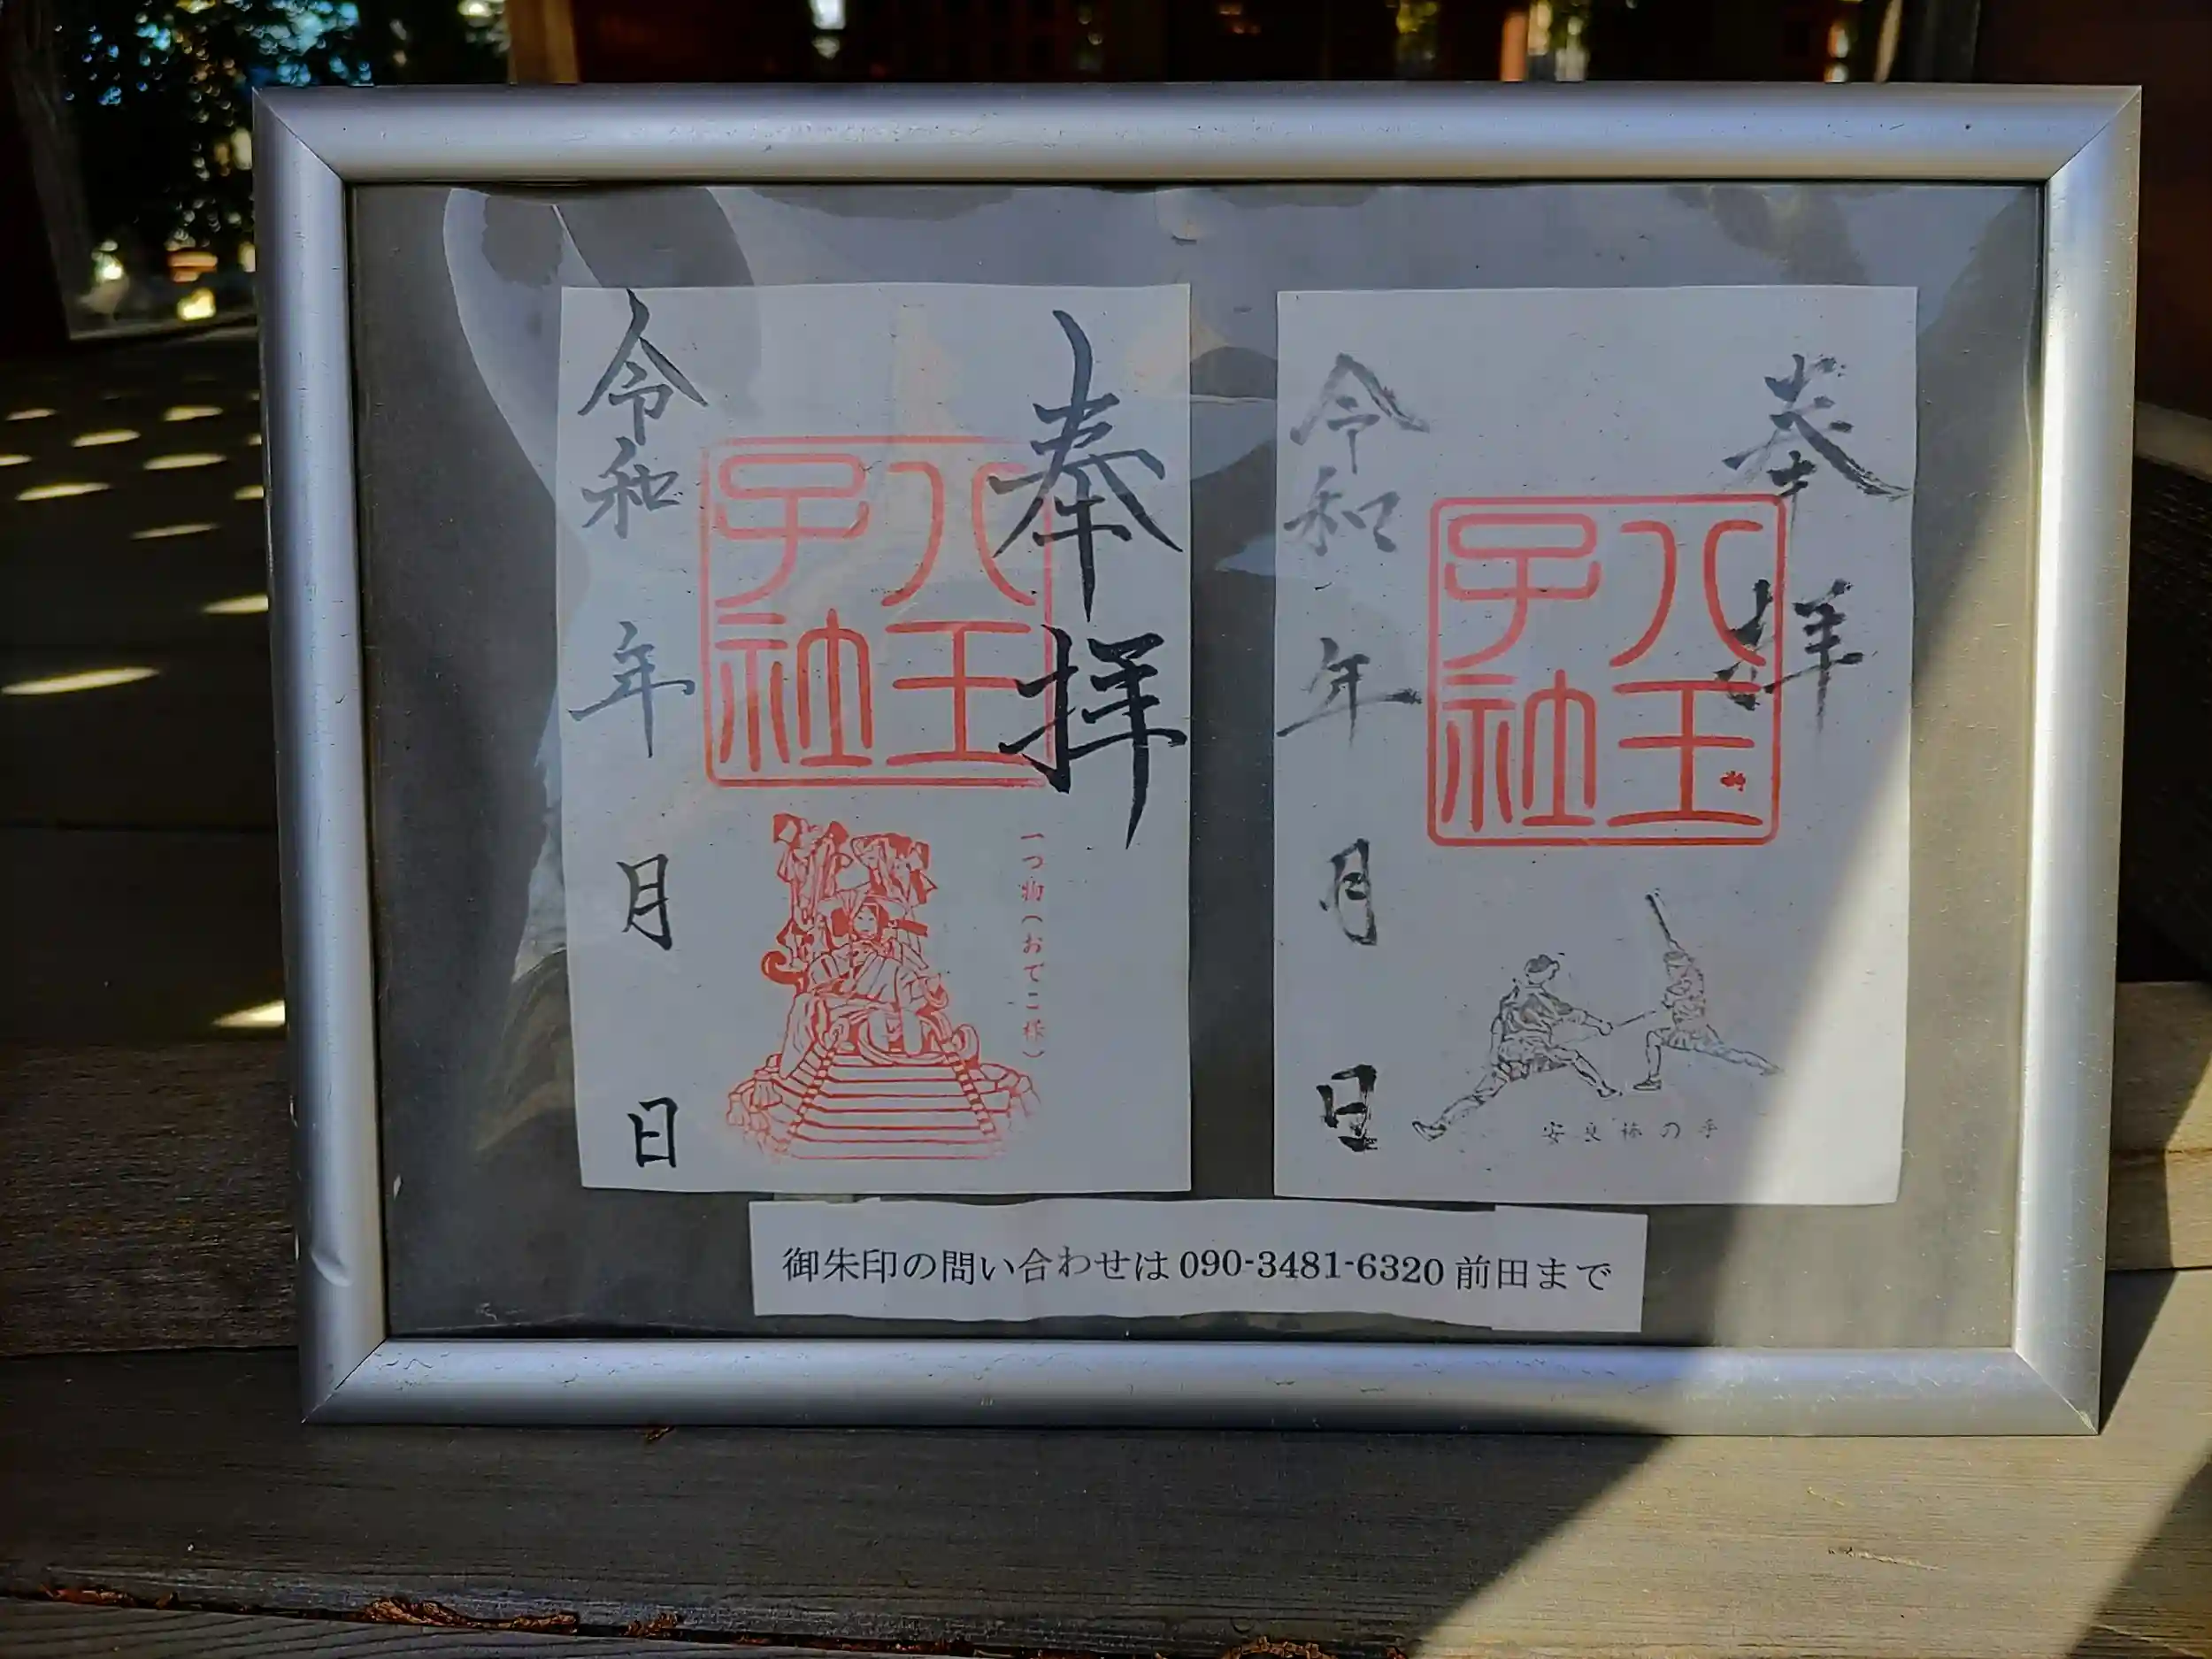 奉拝
八王子社
一つ物(おでこ様)
令和 年 月 日
奉拝
八王子社
安良棒の手
令和 年 月 日
御朱印の問い合わせは 090-3481-6320 前田まで